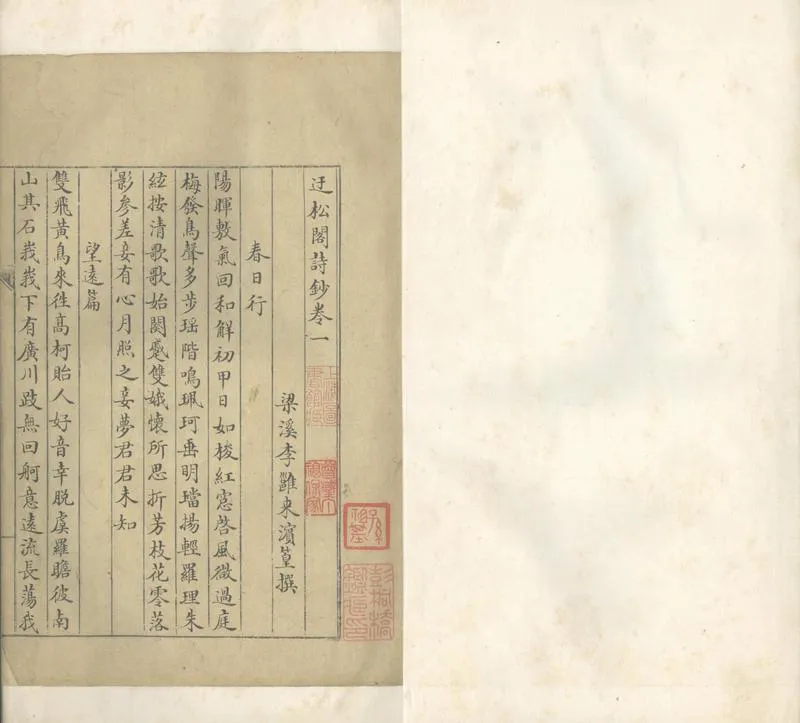 迂松閣詩鈔卷一
梁溪李雝來濵篁撰
春日行
陽暉敷氣回和解初甲日如梭紅窓啓風微過庭
梅發鳥聲多步瑶階鳴珮珂垂明璫揚輕羅理朱
絃按清歌歌始闋蹙雙娥懷所思折芳枝花零落
影參差妾有心月照之妾夢君君未知
望遠篇
雙飛黃鳥來徃高柯貽人好音幸脫虞羅瞻彼南
山其石峩峩下有廣川跂無回舸意遠流長蕩我